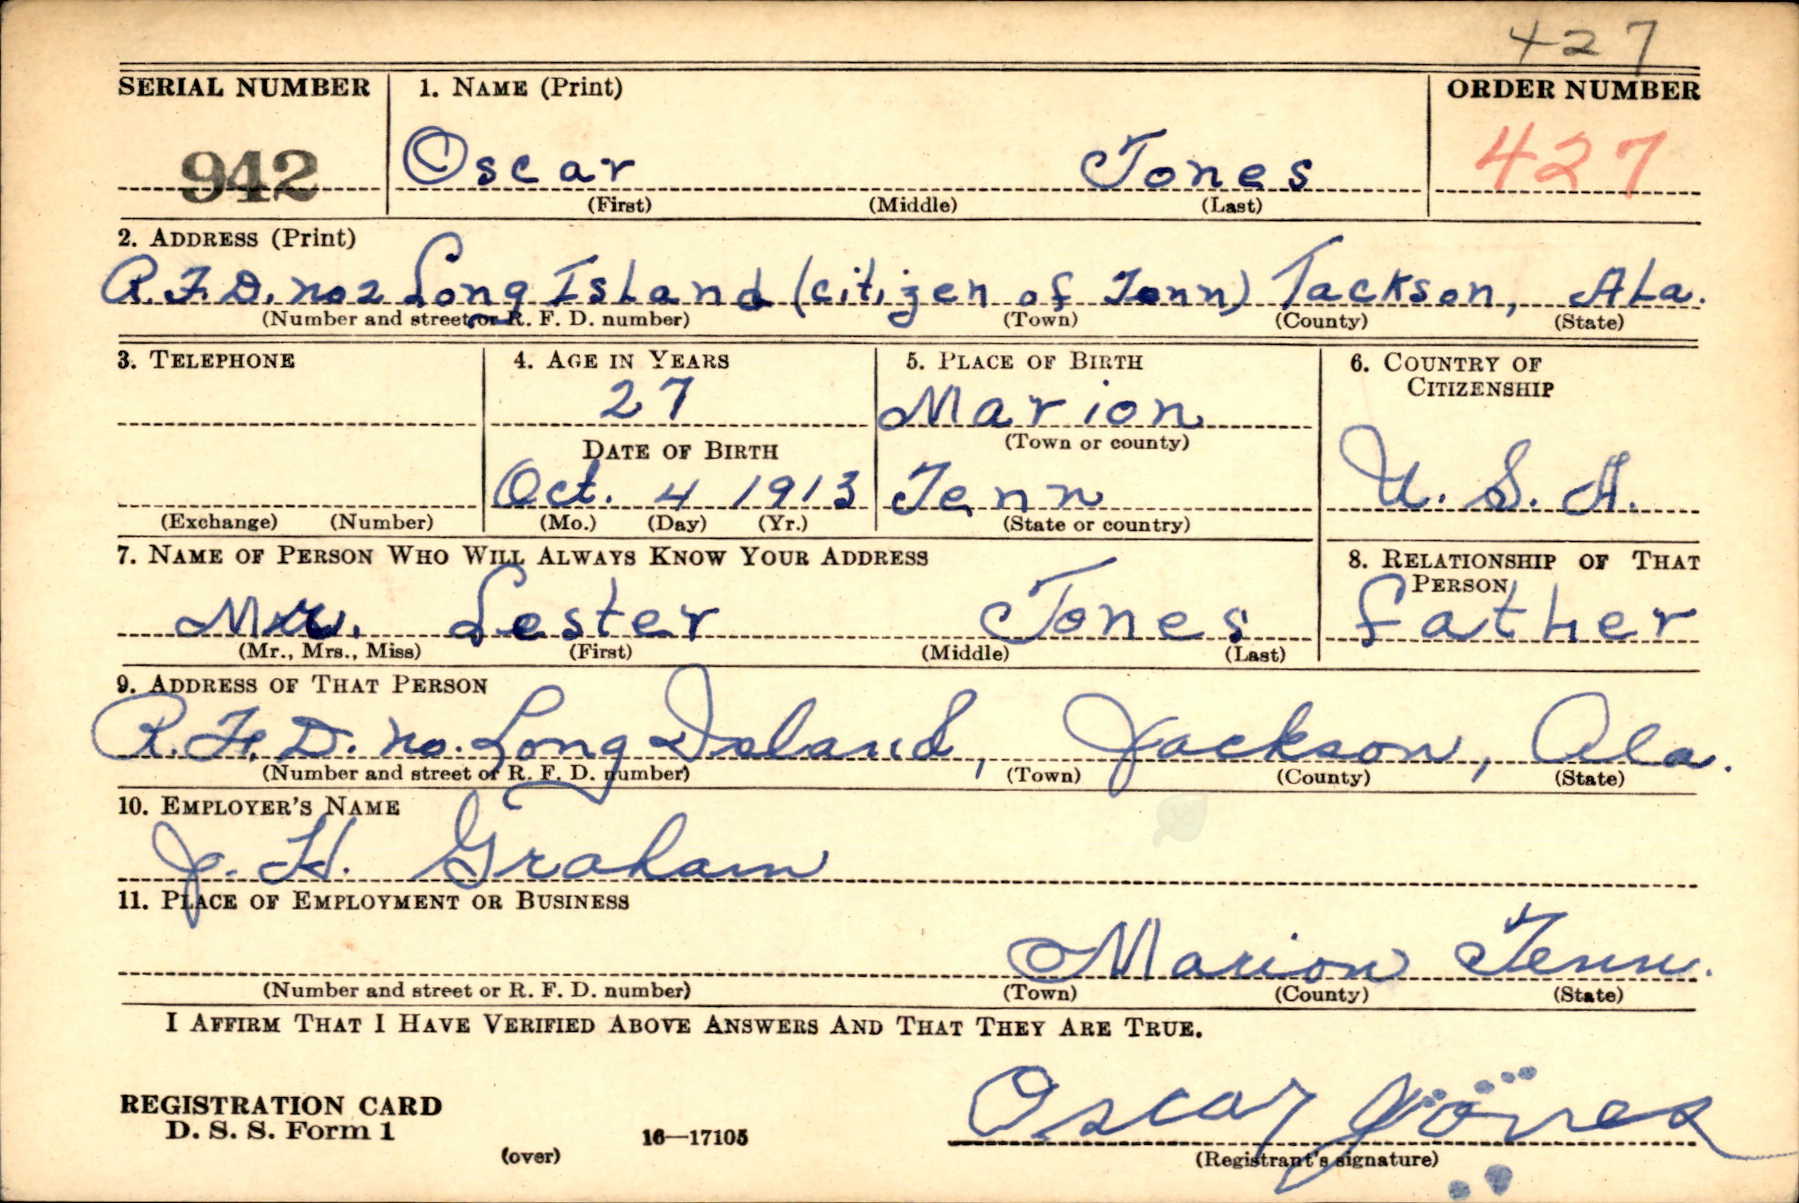 427
SERIAL NUMBER 1. NAME (Print) ORDER NUMBER
942 Oscar Jones 427
(First) (Middle) (Last)
2. ADDRESS (Print)
R.F.D. no 2 Long Island (citizen of Tenn) Jackson, Ala.
(Number and street or R. F. D. number) (Town) (County) (State)
3. TELEPHONE 4. AGE IN YEARS 5. PLACE OF BIRTH 6. COUNTRY OF CITIZENSHIP
27 Marion
DATE OF BIRTH (Town or county)
Oct. 4 1913 Tenn U. S. A.
(Exchange) (Number) (Mo.) (Day) (Yr.) (State or country)
7. NAME OF PERSON WHO WILL ALWAYS KNOW YOUR ADDRESS 8. RELATIONSHIP OF THAT PERSON
Mr. Lester Jones father
(Mr., Mrs., Miss) (First) (Middle) (Last)
9. ADDRESS OF THAT PERSON
R. F. D. no. Long Island, Jackson, Ala.
(Number and street or R. F. D. number) (Town) (County) (State)
10. EMPLOYER'S NAME
J. H. Graham
11. PLACE OF EMPLOYMENT OR BUSINESS
Marion Tenn.
(Number and street or R. F. D. number) (Town) (County) (State)
I AFFIRM THAT I HAVE VERIFIED ABOVE ANSWERS AND THAT THEY ARE TRUE.
REGISTRATION CARD
D. S. S. Form 1 Oscar Jones
(over) 16—17105 (Registrant's signature)